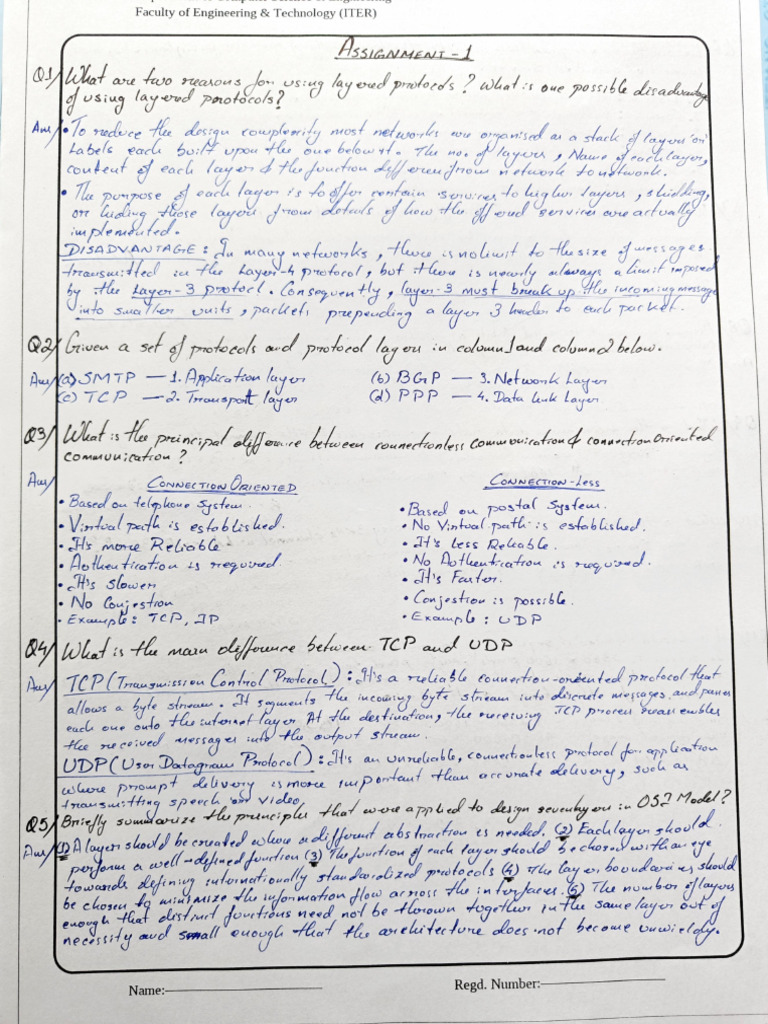 Faculty of Engineering & Technology (ITER)
ASSIGNMENT-1
Q1/ What are two reasons for using layered protocols? What is one possible disadvantage
of using layered porotocols?
Ans/ • To reduce the design complexity most networks are organised as a stack of layer on
Labels each built upon the one below it. The no. of layers, Name of each layer,
content of each layer & the function differ from network to network.
• The purpose of each layer is to offer certain services to higher layers, shielding,
or hiding those layer from details of how the offered services are actually
implemented.
DISADVANTAGE: In many networks, there is no limit to the size of messages
transmitted in the Layer-4 protocol, but there is nearly always a limit imposed
by the Layer-3 protocl. Consequently, layer-3 must break up the incoming message
into smaller units, packets, prepending a layer 3 header to each packet.
Q2/ Given a set of protocols and protocol layer in column1 and column2 below.
Ans/ (a) SMTP — 1. Application layer (b) BGP — 3. Network Layer
(c) TCP — 2. Transport layer (d) PPP — 4. Data link Layer
Q3/ What is the principal difference between connectionless communication & connection oriented
communication?
Ans/ CONNECTION ORIENTED CONNECTION-LESS
• Based on telephone system. • Based on postal System.
• Virtual path is established. • No Virtual path is established.
• It's more Reliable • It's less Reliable.
• Authentication is required. • No Authentication is required.
• It's slower • It's Faster.
• No Conjestion • Conjestion is possible.
• Example: TCP, IP • Example: UDP
Q4/ What is the main difference between TCP and UDP
Ans/ TCP (Transmission Control Protocol): It's a reliable connection-oriented protocol that
allows a byte stream. It segments the incoming byte stream into discrete messages and passes
each one onto the internet layer. At the destination, the receiving TCP process reassembles
the received messages into the output stream.
UDP (User Datagram Protocol): It's an unreliable, connectionless protocol for application
where prompt delivery is more important than accurate delivery, such as
transmitting speech or video.
Q5/ Briefly summarize the principles that were applied to design seven layer in OSI Model?
Ans/ (1) A layer should be created where a different abstraction is needed. (2) Each layer should
perform a well-defined function (3) The function of each layer should be chosen with an eye
towards defining internationally standardized protocols (4) The layer boundaries should
be chosen to minimize the information flow across the interfaces. (5) The number of layers
enough that distinct functions need not be thrown together in the same layer out of
necessity and small enough that the architecture does not become unwieldy.
Name: Regd. Number: